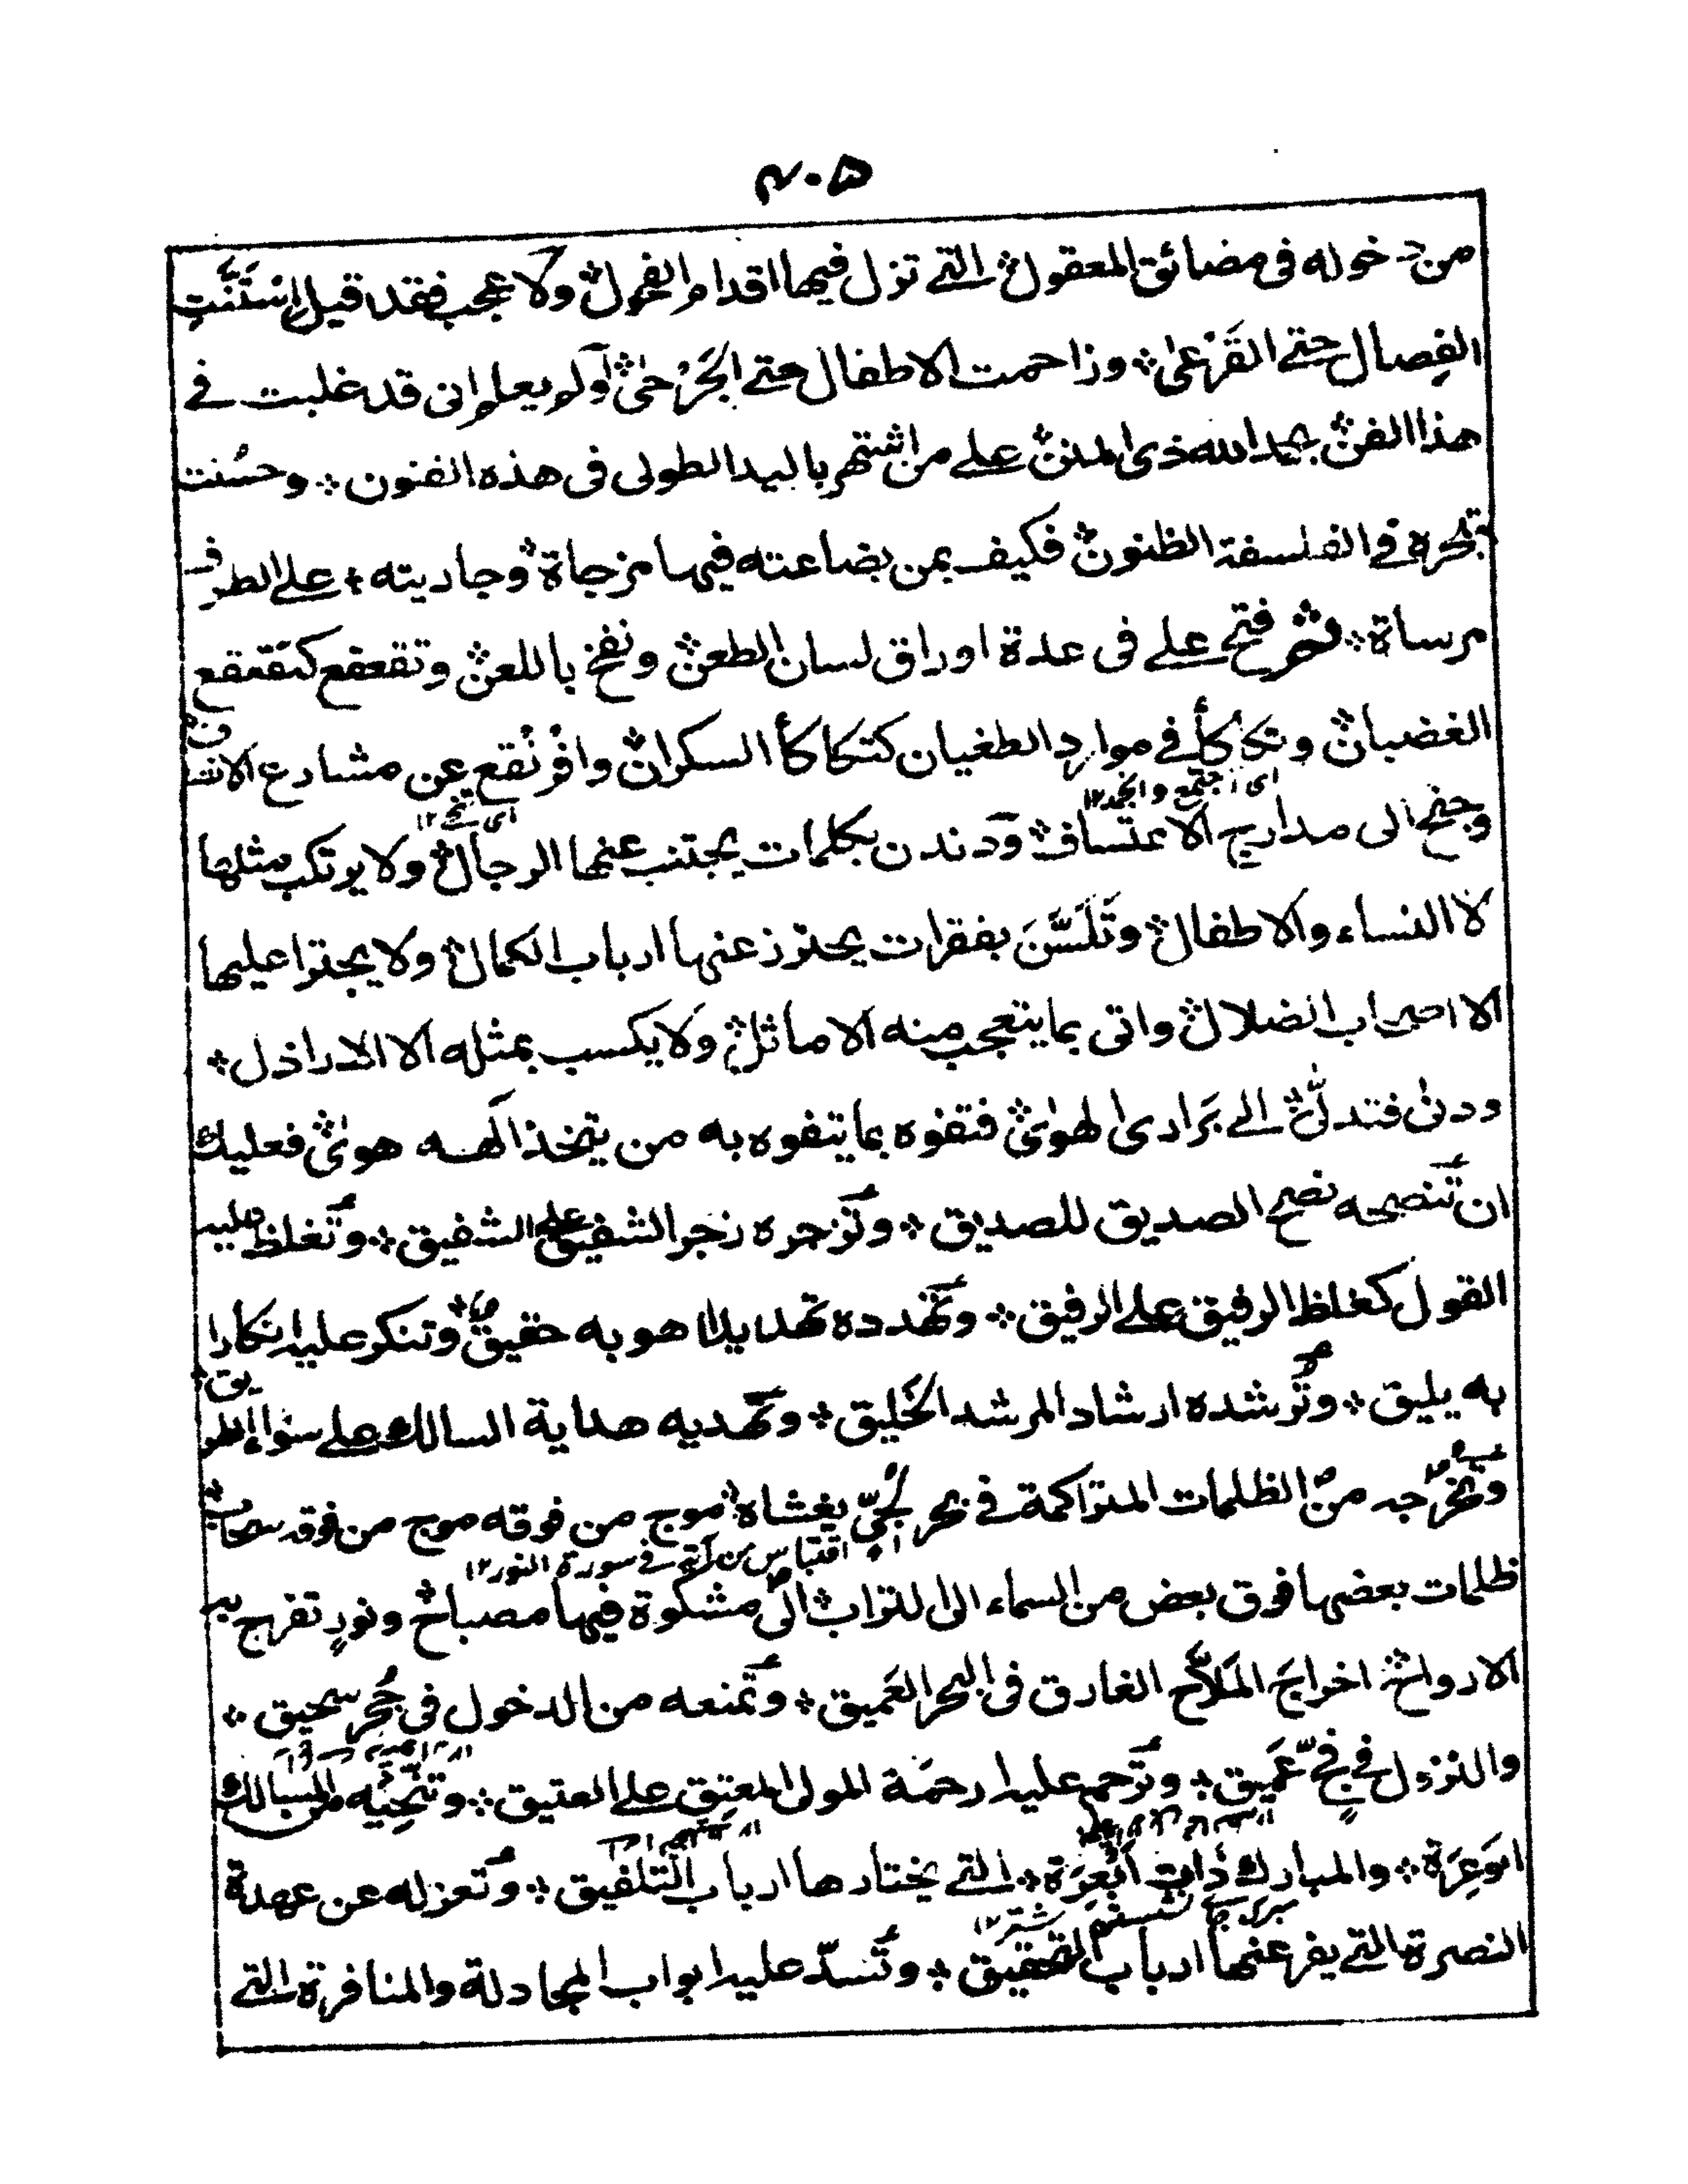 ٤٠٥
من دخوله فى مضائق المعقول ؞ التے تزل فيها اقدام الفحول ؞ ولا عجب فقد قيل اِسْتَنَّتِ
الفِصال حتے القَرْعىٰ ؞ وزاحمت الاطفال حتے الجَرْحىٰ ؞ اولم يعلم انى قد غلبت فے
هذا الفن ؞ بحمد الله ذى المنن ؞ علے من اشتهر باليد الطولى فى هذه الفنون ؞ وحسُنت
بتبحره فے الفلسفة الظنون ؞ فكيف بمن بضاعته فيها مزجاة ؞ وجاريته ؞ علے الطرف
مرساة ؞ ثم فتح علے فى عدة اوراق لسان الطعن ؞ ونفخ باللعن ؞ وتقعقع كتقعقع
الغضبان ؞ وتكأكأ فے موارد الطغيان كتكاكأ السكران ؞ وافْرَنْقع عن مشارع الانصاف ؞
اى اجتمع وانجمد ١٢
اى تنحے ١٢
وجنح الى مدارج الاعتساف ؞ ودندن بكلمات يجتنب عنها الرجال ؞ ولا يرتكب مثلها
الا النساء والاطفال ؞ وتَلَسَّنَ بفقرات يحترز عنها ارباب الكمال ؞ ولا يجترا عليها
الا اصحاب الضلال ؞ واتى بما يتعجب منه الاماثل ؞ ولا يكسب بمثله الا الاراذل ؞
ودنىٰ فتدلّٰى ؞ الے بَرارى الهوىٰ ؞ فتفوه بما يتفوه به من يتخذ الٰهه هوىٰ ؞ فعليك
ان تنصحه نصح الصديق للصديق ؞ وتزجره زجر الشفيق علے الشفيق ؞ وتغلظ عليه
القول كغلظ الرفيق علے الرفيق ؞ وتهدده تهديدا هو به حقيق ؞ وتنكر عليه انكارا
به يليق ؞ وتُرشده ارشاد المرشد الخليق ؞ وتهديه هداية السالك علے سواء الطريق ؞
وتخرجه من الظلمات المتراكمة فے بحر لُجِّىّ يغشاه ؞ موج من فوقه موج من فوقه سحاب ؞
اقتباس من آية فے سورة النور ١٢
ظلمات بعضها فوق بعض من السماء الى التراب ؞ الى مشكوة فيها مصباح ؞ ونورٍ تفرح به
الارواح ؞ اخراجَ المَلاّح الغارق فى البحر العَميق ؞ وتمنعه من الدخول فى جُحْر سحيق ؞
والنزول فے فجٍّ عَميق ؞ وترحم عليه رحمة المولى المعتِق علے العتيق ؞ وتنحِّيه من المسالك
الوَعِرَة ؞ والمبارك ذات البَعِرَة ؞ التے يختارها ارباب التلفيق ؞ وتعزله عن عهدة
النصرة التے يفر عنها ارباب التحقيق ؞ وتسدّ عليه ابواب المجادلة والمنافرة التے